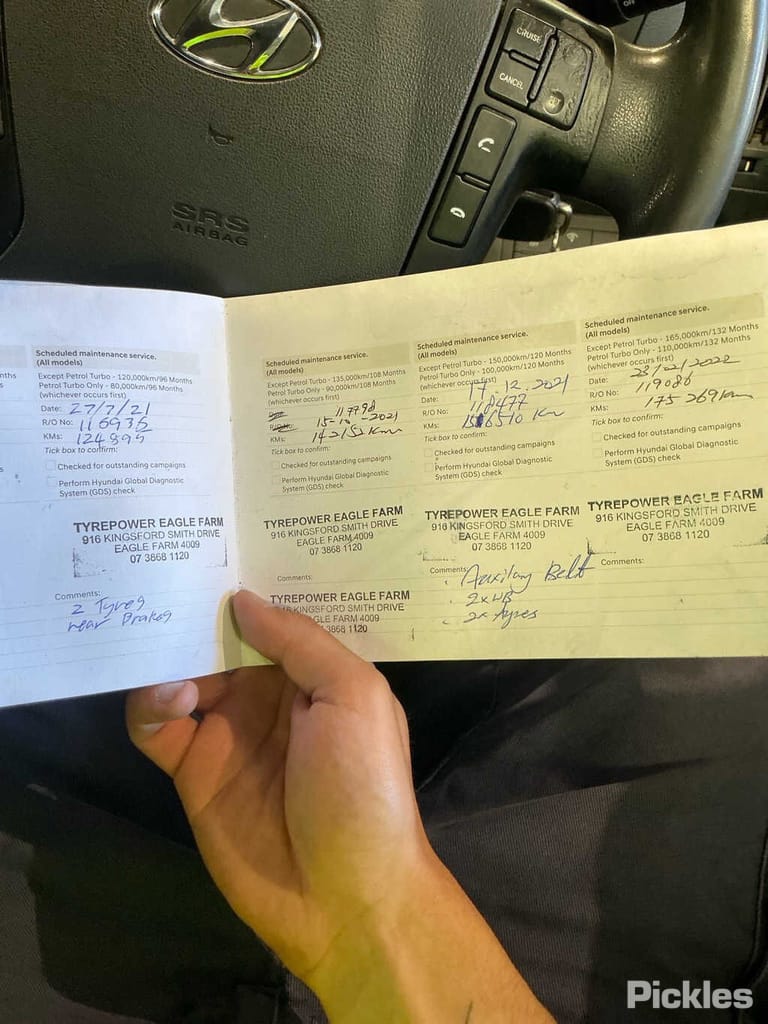 OFF
CRUISE
CANCEL
SRS
AIRBAG
Scheduled maintenance service.
(All models)
Except Petrol Turbo - 120,000km/96 Months
Petrol Turbo Only - 80,000km/96 Months
(whichever occurs first)
Date: 27/7/21
R/O No: 116935
KMs: 124895
Tick box to confirm:
Checked for outstanding campaigns
Perform Hyundai Global Diagnostic
System (GDS) check
TYREPOWER EAGLE FARM
916 KINGSFORD SMITH DRIVE
EAGLE FARM 4009
07 3868 1120
Comments:
2 Tyres
rear Brakes
Scheduled maintenance service.
(All models)
Except Petrol Turbo - 135,000km/108 Months
Petrol Turbo Only - 90,000km/108 Months
(whichever occurs first)
117798
15-10-2021
KMs: 142153 Km
Tick box to confirm:
Checked for outstanding campaigns
Perform Hyundai Global Diagnostic
System (GDS) check
TYREPOWER EAGLE FARM
916 KINGSFORD SMITH DRIVE
EAGLE FARM 4009
07 3868 1120
Comments:
TYREPOWER EAGLE FARM
916 KINGSFORD SMITH DRIVE
EAGLE FARM 4009
3868 1120
Scheduled maintenance service.
(All models)
Except Petrol Turbo - 150,000km/120 Months
Petrol Turbo Only - 100,000km/120 Months
(whichever occurs first)
Date: 17.12.2021
R/O No: 118477
KMs: Km
Tick box to confirm:
Checked for outstanding campaigns
Perform Hyundai Global Diagnostic
System (GDS) check
TYREPOWER EAGLE FARM
916 KINGSFORD SMITH DRIVE
EAGLE FARM 4009
07 3868 1120
Comments:
Auxilary Belt
2x WB
2x Tyres
Scheduled maintenance service.
(All models)
Except Petrol Turbo - 165,000km/132 Months
Petrol Turbo Only - 110,000km/132 Months
(whichever occurs first)
Date: 28/02/2022
R/O No: 119086
KMs: 175269km
Tick box to confirm:
Checked for outstanding campaigns
Perform Hyundai Global Diagnostic
System (GDS) check
TYREPOWER EAGLE FARM
916 KINGSFORD SMITH DRIVE
EAGLE FARM 4009
07 3868 1120
Comments:
Pickles